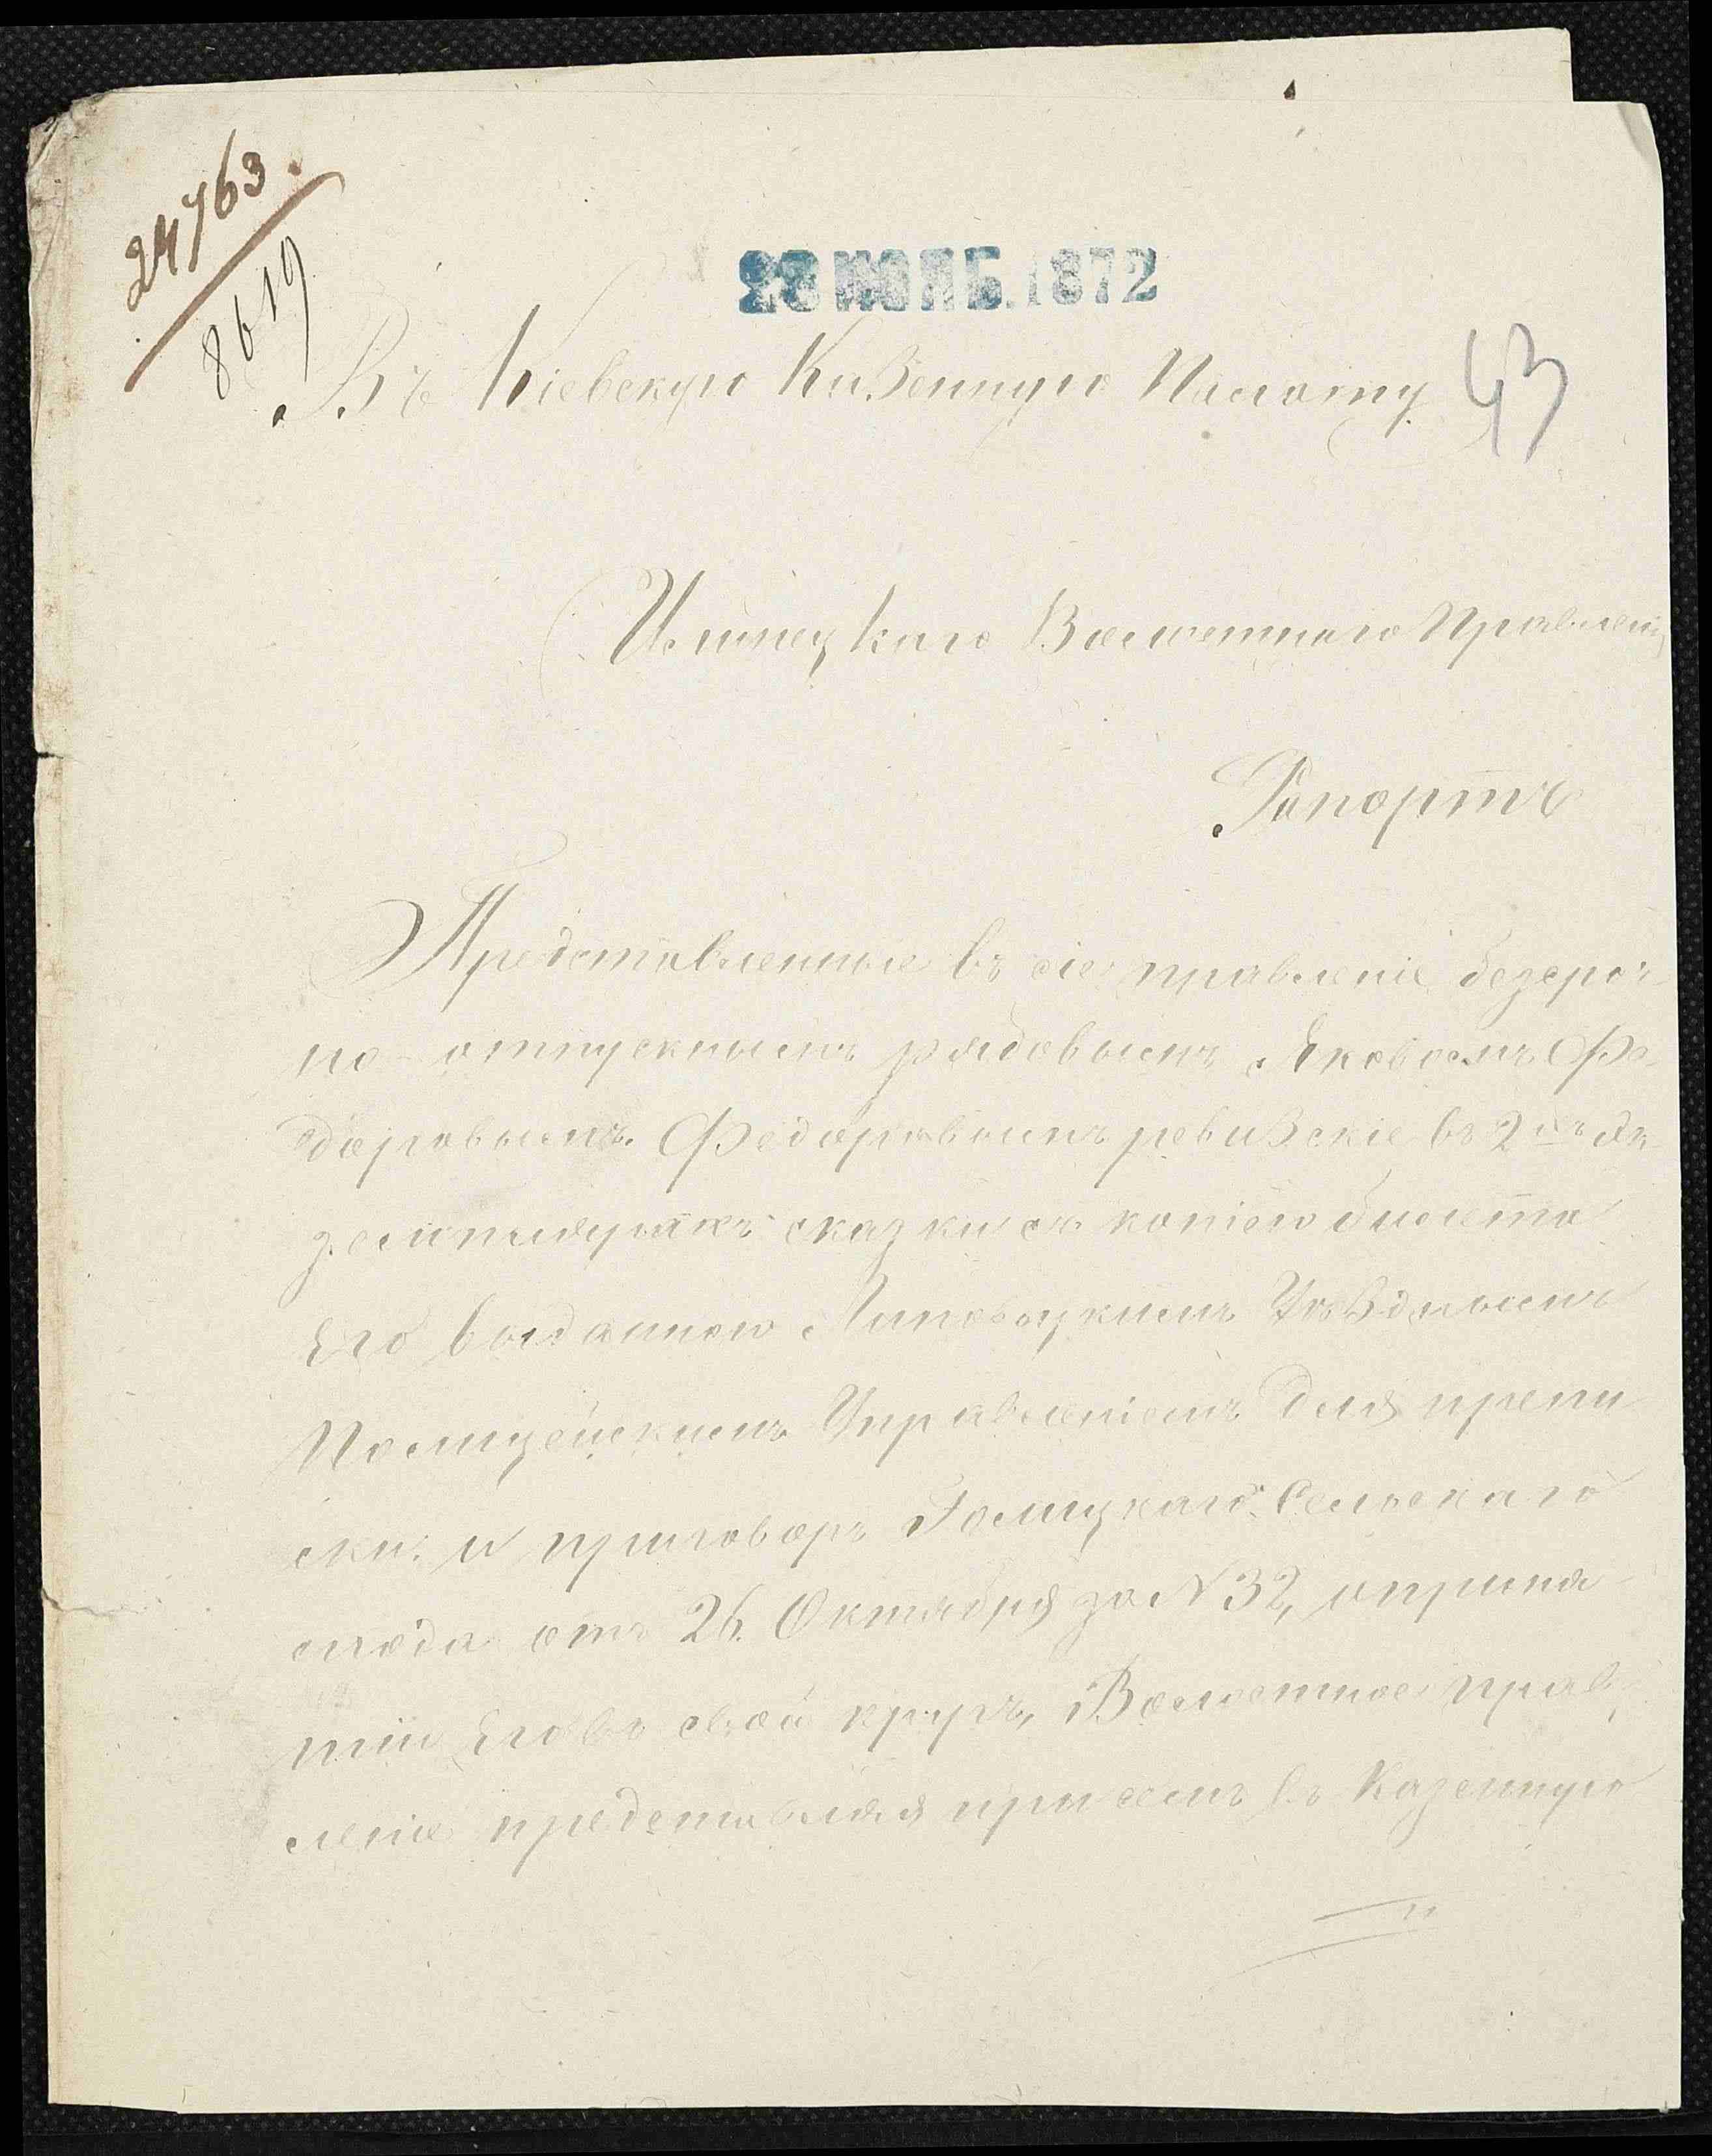 24763.
8619
28 НОЯБ. 1872
Въ Кіевскую Казенную Палату
43
Волостного Правленія
Рапортъ
Представленные въ сіе правленіе безсроч-
но-отпускнымъ рядовымъ Яковомъ Фе-
доровымъ Федоровымъ ревизскіе въ 2хъ эк-
земплярахъ сказки съ копіею билета
Его выданною Липовецкимъ Уѣзднымъ
Полицейскимъ Управленіемъ для припи
ски и приговоръ Сельскаго
схода отъ 26. Октября за N 32, о приня-
тіи Его въ свой кругъ, Волостное прав-
леніе представляя при семъ въ Казенную